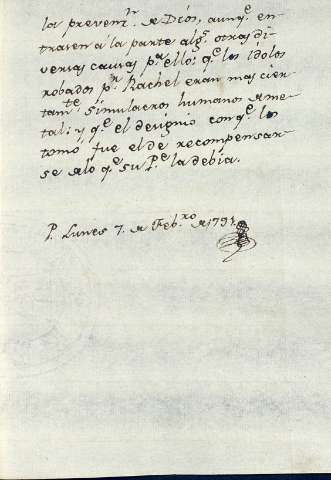 la prevenⁿ. de Dios, aunqᵉ. en-
traren á la parte algˢ. otras di-
versas causas pª. ello: qᵉ. los ídolos
robados pʳ. Rachel eran mas cier-
tamᵗᵉ. Simulacros humanos de me-
tal: y qᵉ. el designio con qᵉ. los
tomó, fue el de recompensar-
se de lo qᵉ. su Pᵉ. la debia.
Pª. Lunes 7. de Febʳᵒ. de 1791.